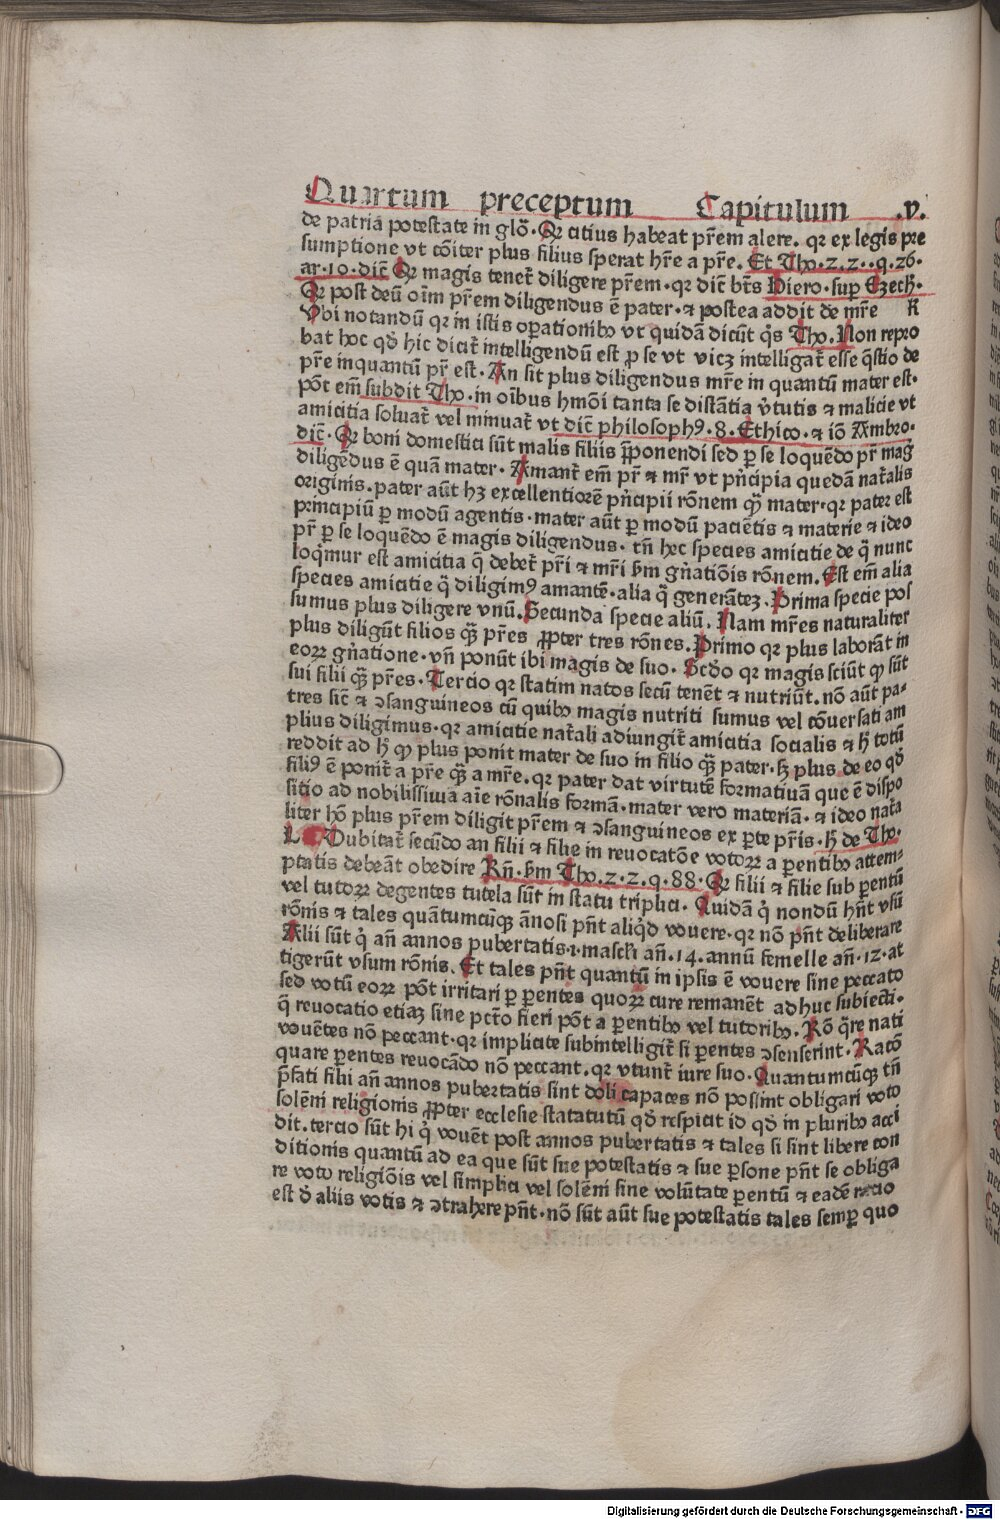 Quartum preceptum Capitulum .v.
de patria potestate in glõ. Qꝛ citius habeat pr̃em alere. qꝛ ex legis pre
sumptione vt cõiter plus filius sperat hr̃e a pr̃e. Et Tho. 2. 2. .q. 26.
ar. 10. dic̃ Qꝛ magis tenet̃ diligere pr̃em. qꝛ dic̃ bt̃s Hiero. suꝑ Ezech̃.
Qꝛ post deũ oĩm pr̃em diligendus ẽ pater. ⁊ postea addit de mr̃e K
Vbi notandũ qꝛ in istis oꝑationibꝰ vt quidã dicũt q̃s Tho. Non repro
bat hoc qđ hic dicit̃ intelligendũ est ꝓ se vt vicꝫ intelligat̃ esse q̃stio de
pr̃e inquantũ pr̃ est. An sit plus diligendus mr̃e in quantũ mater est.
põt em̃ subdit Tho. in oĩbus hmõi tanta se distãtia v̾tutis ⁊ malicie vt
amicitia soluat̃ vel minuat̃ vt dic̃ philosophꝰ. 8. Ethico. ⁊ iõ Ambro.
dic̃. Qꝛ boni domestici sũt malis filiis p̃ponendi sed ꝑ se loquẽdo pr̃ mag̃
diligẽdus ẽ quã mater. Amant̃ em̃ pr̃ ⁊ mr̃ vt pñcipia quedã nat̃alis
originis. pater aũt hꝫ excellentiorẽ pñcipii rõnem q̃ꝫ mater. qꝛ pater est
principiũ ꝑ modũ agentis. mater aũt ꝑ modũ paciẽtis ⁊ materie ⁊ ideo
pr̃ ꝑ se loquẽdo ẽ magis diligendus. tñ hec species amicitie de q̃ nunc
loq̃mur est amicitia q̃ debet̃ pr̃i ⁊ mr̃i ẜm gñatiõis rõnem. Est em̃ alia
species amicitie q̃ diligimꝰ amantẽ. alia q̃ generãteꝫ. Prima specie pos
sumus plus diligere vnũ. Secunda specie aliũ. Nam mr̃es naturaliter
plus diligũt filios q̃ꝫ pr̃es ꝓpter tres rõnes. Primo qꝛ plus laborãt in
eoꝝ gñatione. vñ ponũt ibi magis de suo. Scđo qꝛ magis sciũt ꝙ sũt
sui filii q̃ꝫ pr̃es. Tercio qꝛ statim natos secũ tenẽt ⁊ nutriũt. nõ aũt pa-
tres sic̃ ⁊ ꝯsanguineos cũ quibꝰ magis nutriti sumus vel cõuersati am
plius diligimus. qꝛ amicitie nat̃ali adiungit̃ amicitia socialis ⁊ h̃ totũ
reddit ad h̃ ꝙ plus ponit mater de suo in filio q̃ꝫ pater. sꝫ plus de eo qđ
filiꝰ ẽ ponit̃ a pr̃e q̃ꝫ a mr̃e. qꝛ pater dat virtutẽ formatiuã que ẽ dispo
sitio ad nobilissima aĩe rõnalis formã. mater vero materiã. ⁊ ideo nat̃a
liter hõ plus pr̃em diligit pr̃em ⁊ ꝯsanguineos ex ꝑte pr̃is. h̃ de Tho.
L Dubitat̃ secũdo an filii ⁊ filie in reuocatõe votoꝝ a ꝑentibꝰ attem-
ptatis debeãt obedire Rñ. ẜm Tho. 2. 2. q. 88. Qꝛ filii ⁊ filie sub ꝑentũ
vel tutoꝝ degentes tutela sũt in statu triplici. Quidã q̃ nondũ hñt vsũ
rõnis ⁊ tales quãtumcũqꝫ ãnosi pñt aliq̃d vouere. qꝛ nõ pñt deliberare
Alii sũt q̃ añ annos pubertatis .i. masc̃li añ. 14. annũ femelle añ. 12. at
tigerũt vsum rõnis. Et tales pñt quantũ in ipsis ẽ vouere sine peccato
sed votũ eoꝝ põt irritari ꝑ ꝑentes quoꝝ cure remanẽt adhuc subiecti.
q̃ reuocatio etiaꝫ sine pct̃o fieri põt a ꝑentibꝰ vel tutoribꝰ. Rõ q̃re nati
vouẽtes nõ peccant. qꝛ implicite subintelligit̃ si ꝑentes ꝯsenserint. Ratõ
quare ꝑentes reuocãdo nõ peccant. qꝛ vtunt̃ iure suo. Quantumcũqꝫ tñ
p̃fati filii añ annos pubertatis sint doli capaces nõ possint obligari voto
solẽni religionis ꝓpter ecclesie statatutũ qđ respicit id qđ in pluribꝰ acci
dit. tercio sũt hi q̃ vouẽt post annos pubertatis ⁊ tales si sint libere con
ditionis quantũ ad ea que sũt sue potestatis ⁊ sue ꝑsone pñt se obliga
re voto religiõis vel simplici vel solẽni sine volũtate ꝑentũ ⁊ eadẽ racio
est đ aliis votis ⁊ ꝯtrahere pñt. nõ sũt aũt sue potestatis tales semꝑ quo
Digitalisierung gefördert durch die Deutsche Forschungsgemeinschaft - DFG